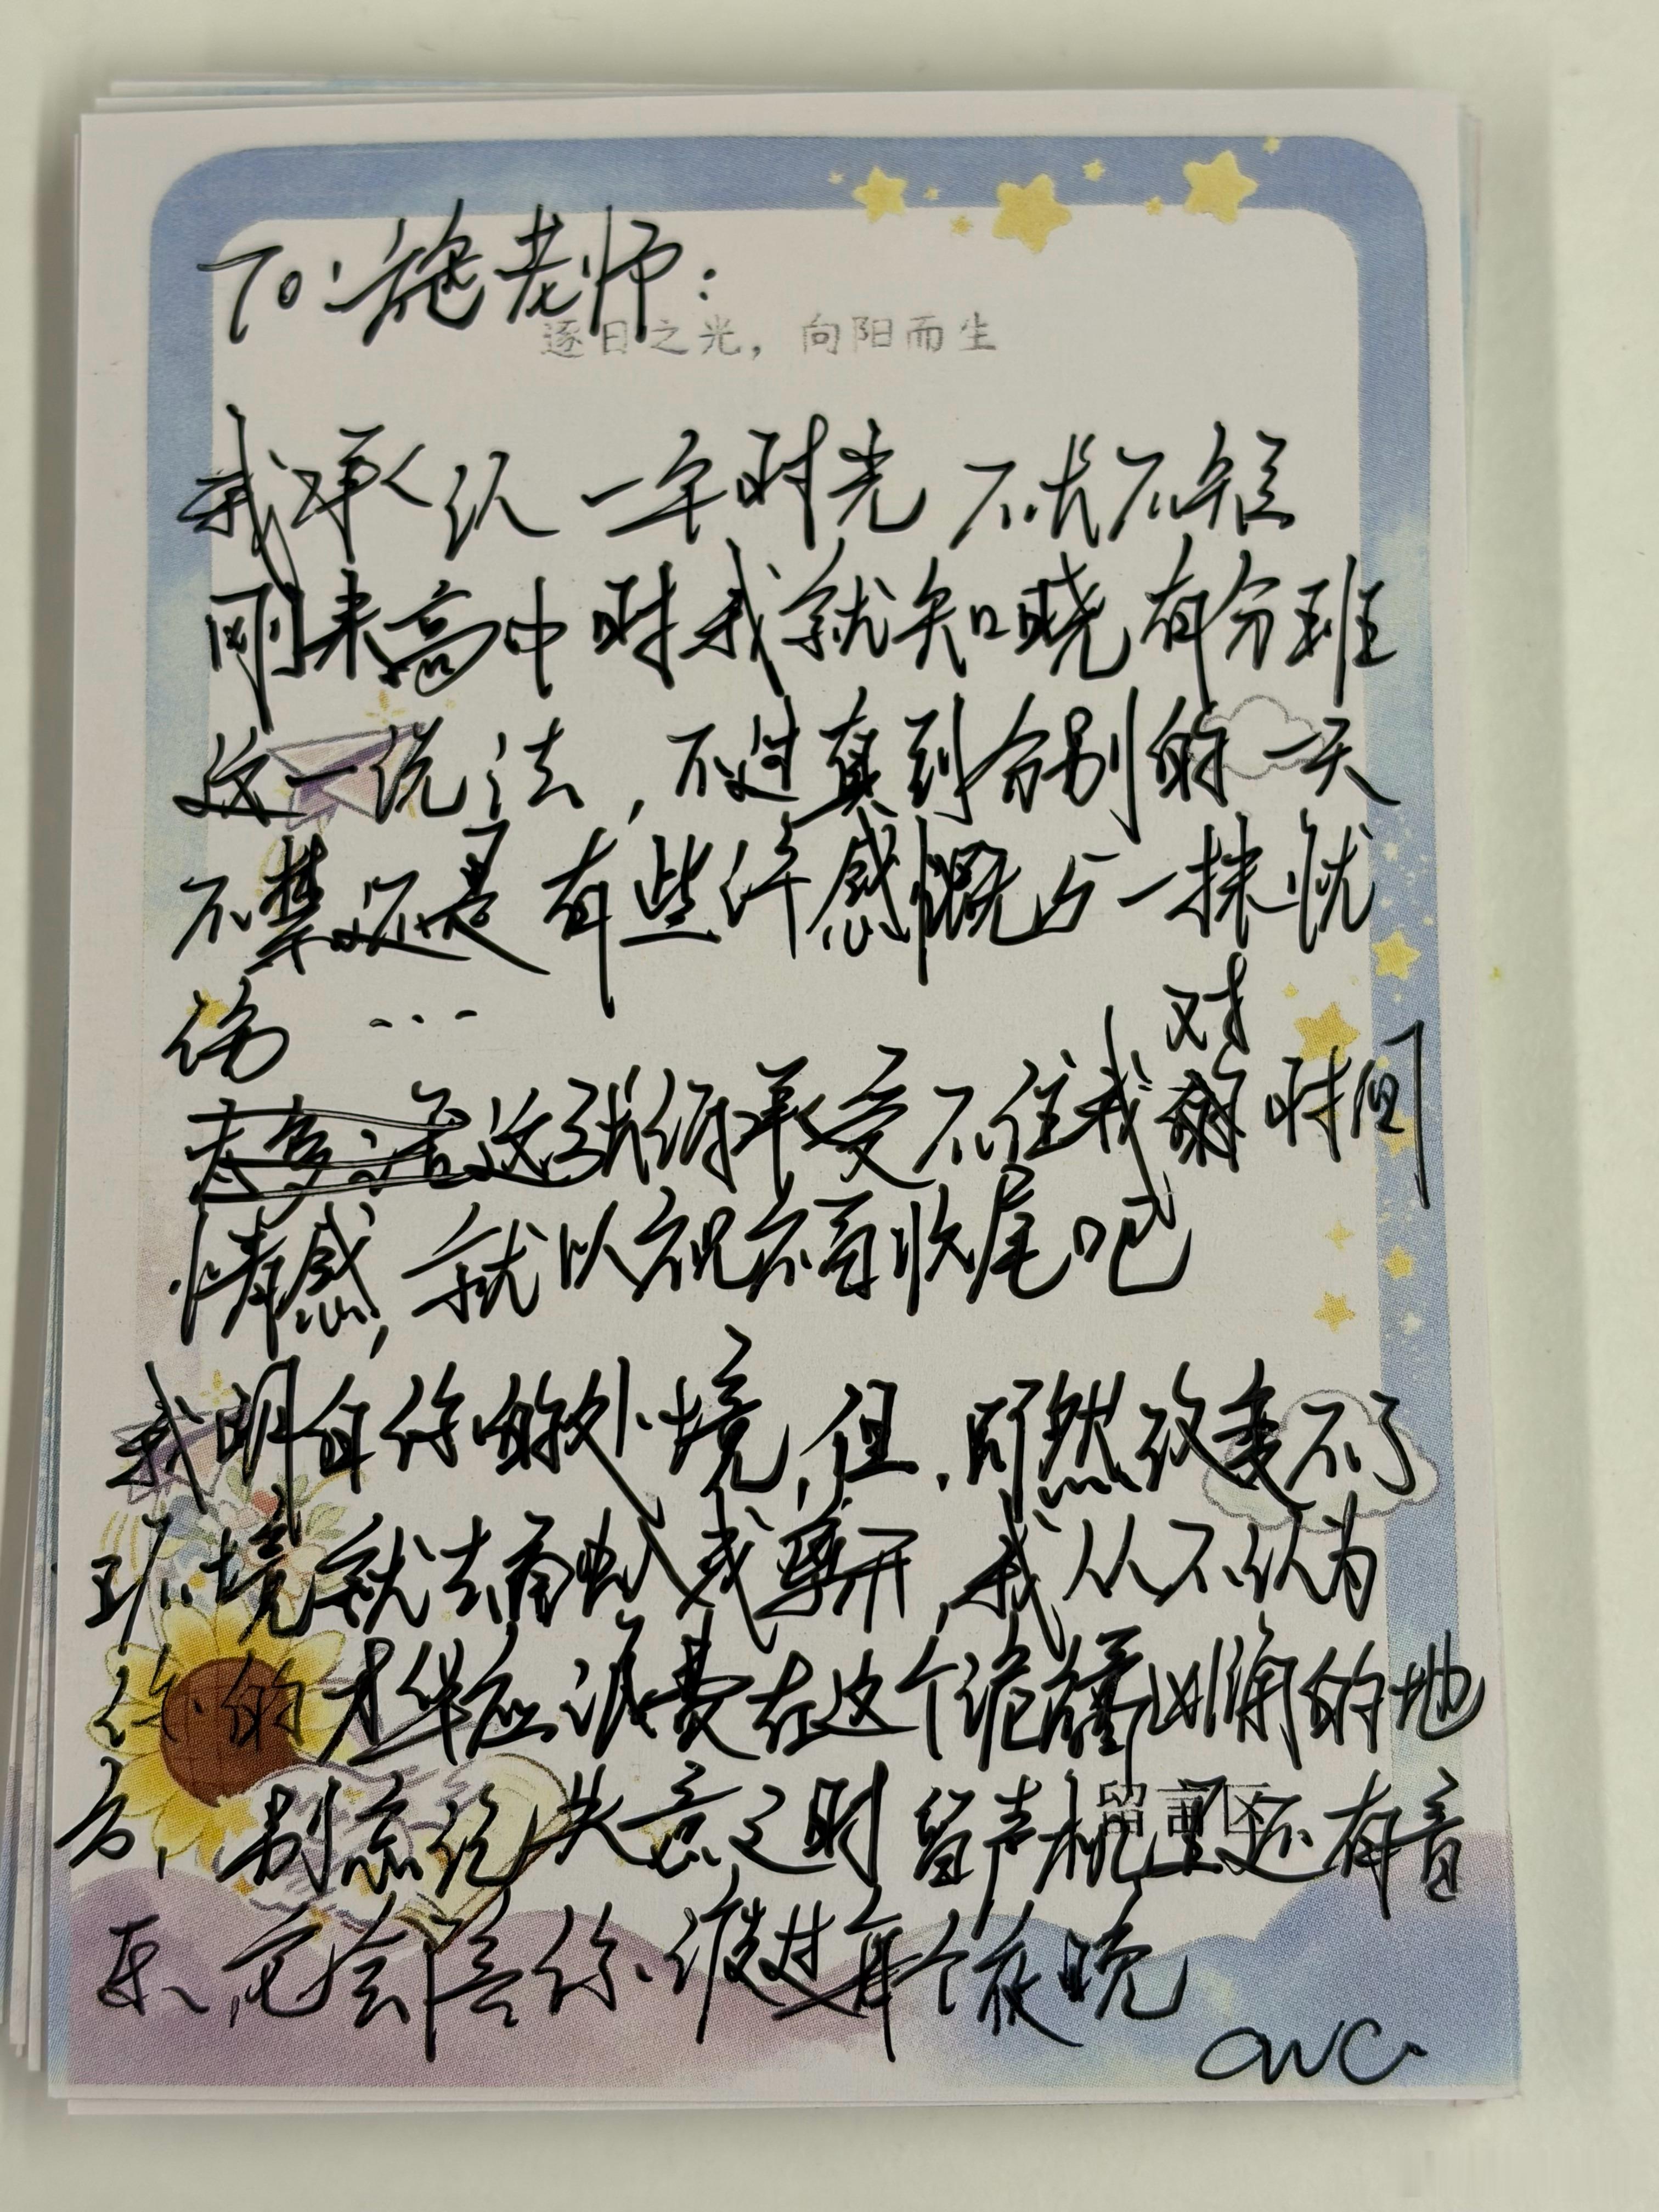 To:施老师:
逐日之光，向阳而生
我承认一年时光不长不短
刚来高中时我就知晓有分班
这一说法,不过真到分别的一天
不禁还是有些许感慨与一抹忧
伤 ...
这张纸承受不住我对时间
情感,就以祝福收尾吧
我明白你的处境,但,既然改变不了
环境就去融入或离开,我从不认为
你的才华应浪费在这个诡谲阴沟的地
方,别忘记失意之时留声机里还有音
留言区
乐,它会陪你渡过每个夜晚